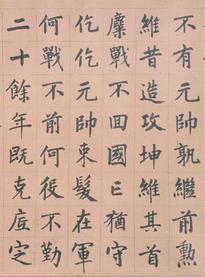 不有元帥孰繼前勳
維昔造攻坤維其首
麋戰不回國亡猶守
仡仡元帥束髮在軍
何戰不前何役不勤
二十餘年既克底定